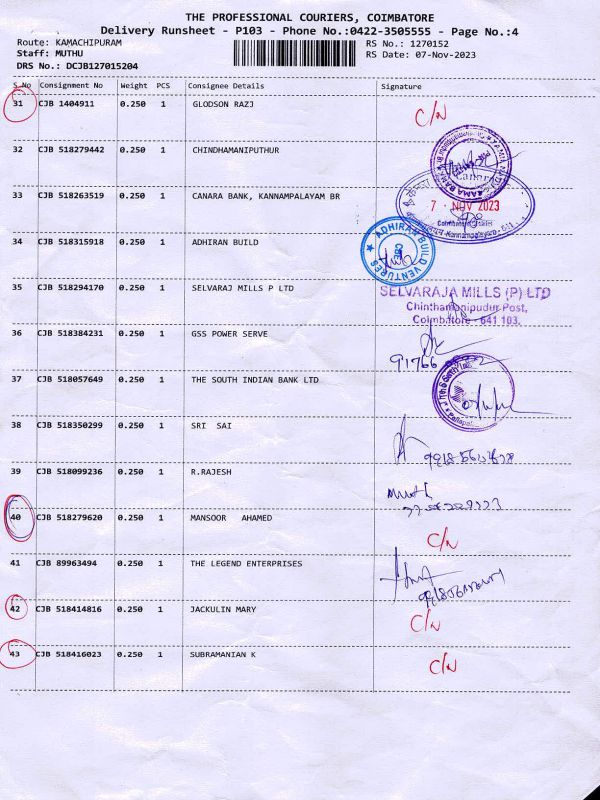 THE PROFESSIONAL COURIERS, COIMBATORE
Delivery Runsheet - P103 - Phone No.:0422-3505555 - Page No.:4
Route: KAMACHIPURAM RS No.: 1270152
Staff: MUTHU RS Date: 07-Nov-2023
DRS No.: DCJB127015204
S.No Consignment No Weight PCS Consignee Details Signature
31 CJB 1404911 0.250 1 GLODSON RAZJ C/N
32 CJB 518279442 0.250 1 CHINDHAMANIPUTHUR
33 CJB 518263519 0.250 1 CANARA BANK, KANNAMPALAYAM BR
Canara
7 NOV 2023
34 CJB 518315918 0.250 1 ADHIRAN BUILD
ADHIRAN BUILD VENTURES
CBE
35 CJB 518294170 0.250 1 SELVARAJ MILLS P LTD
SELVARAJA MILLS (P) LTD
Chinthamanipudur Post,
Coimbatore - 641 103.
36 CJB 518384231 0.250 1 GSS POWER SERVE
91766
37 CJB 518057649 0.250 1 THE SOUTH INDIAN BANK LTD
38 CJB 518350299 0.250 1 SRI SAI
39 CJB 518099236 0.250 1 R.RAJESH
40 CJB 518279620 0.250 1 MANSOOR AHAMED C/N
41 CJB 89963494 0.250 1 THE LEGEND ENTERPRISES
42 CJB 518414816 0.250 1 JACKULIN MARY C/N
43 CJB 518416023 0.250 1 SUBRAMANIAN K C/N